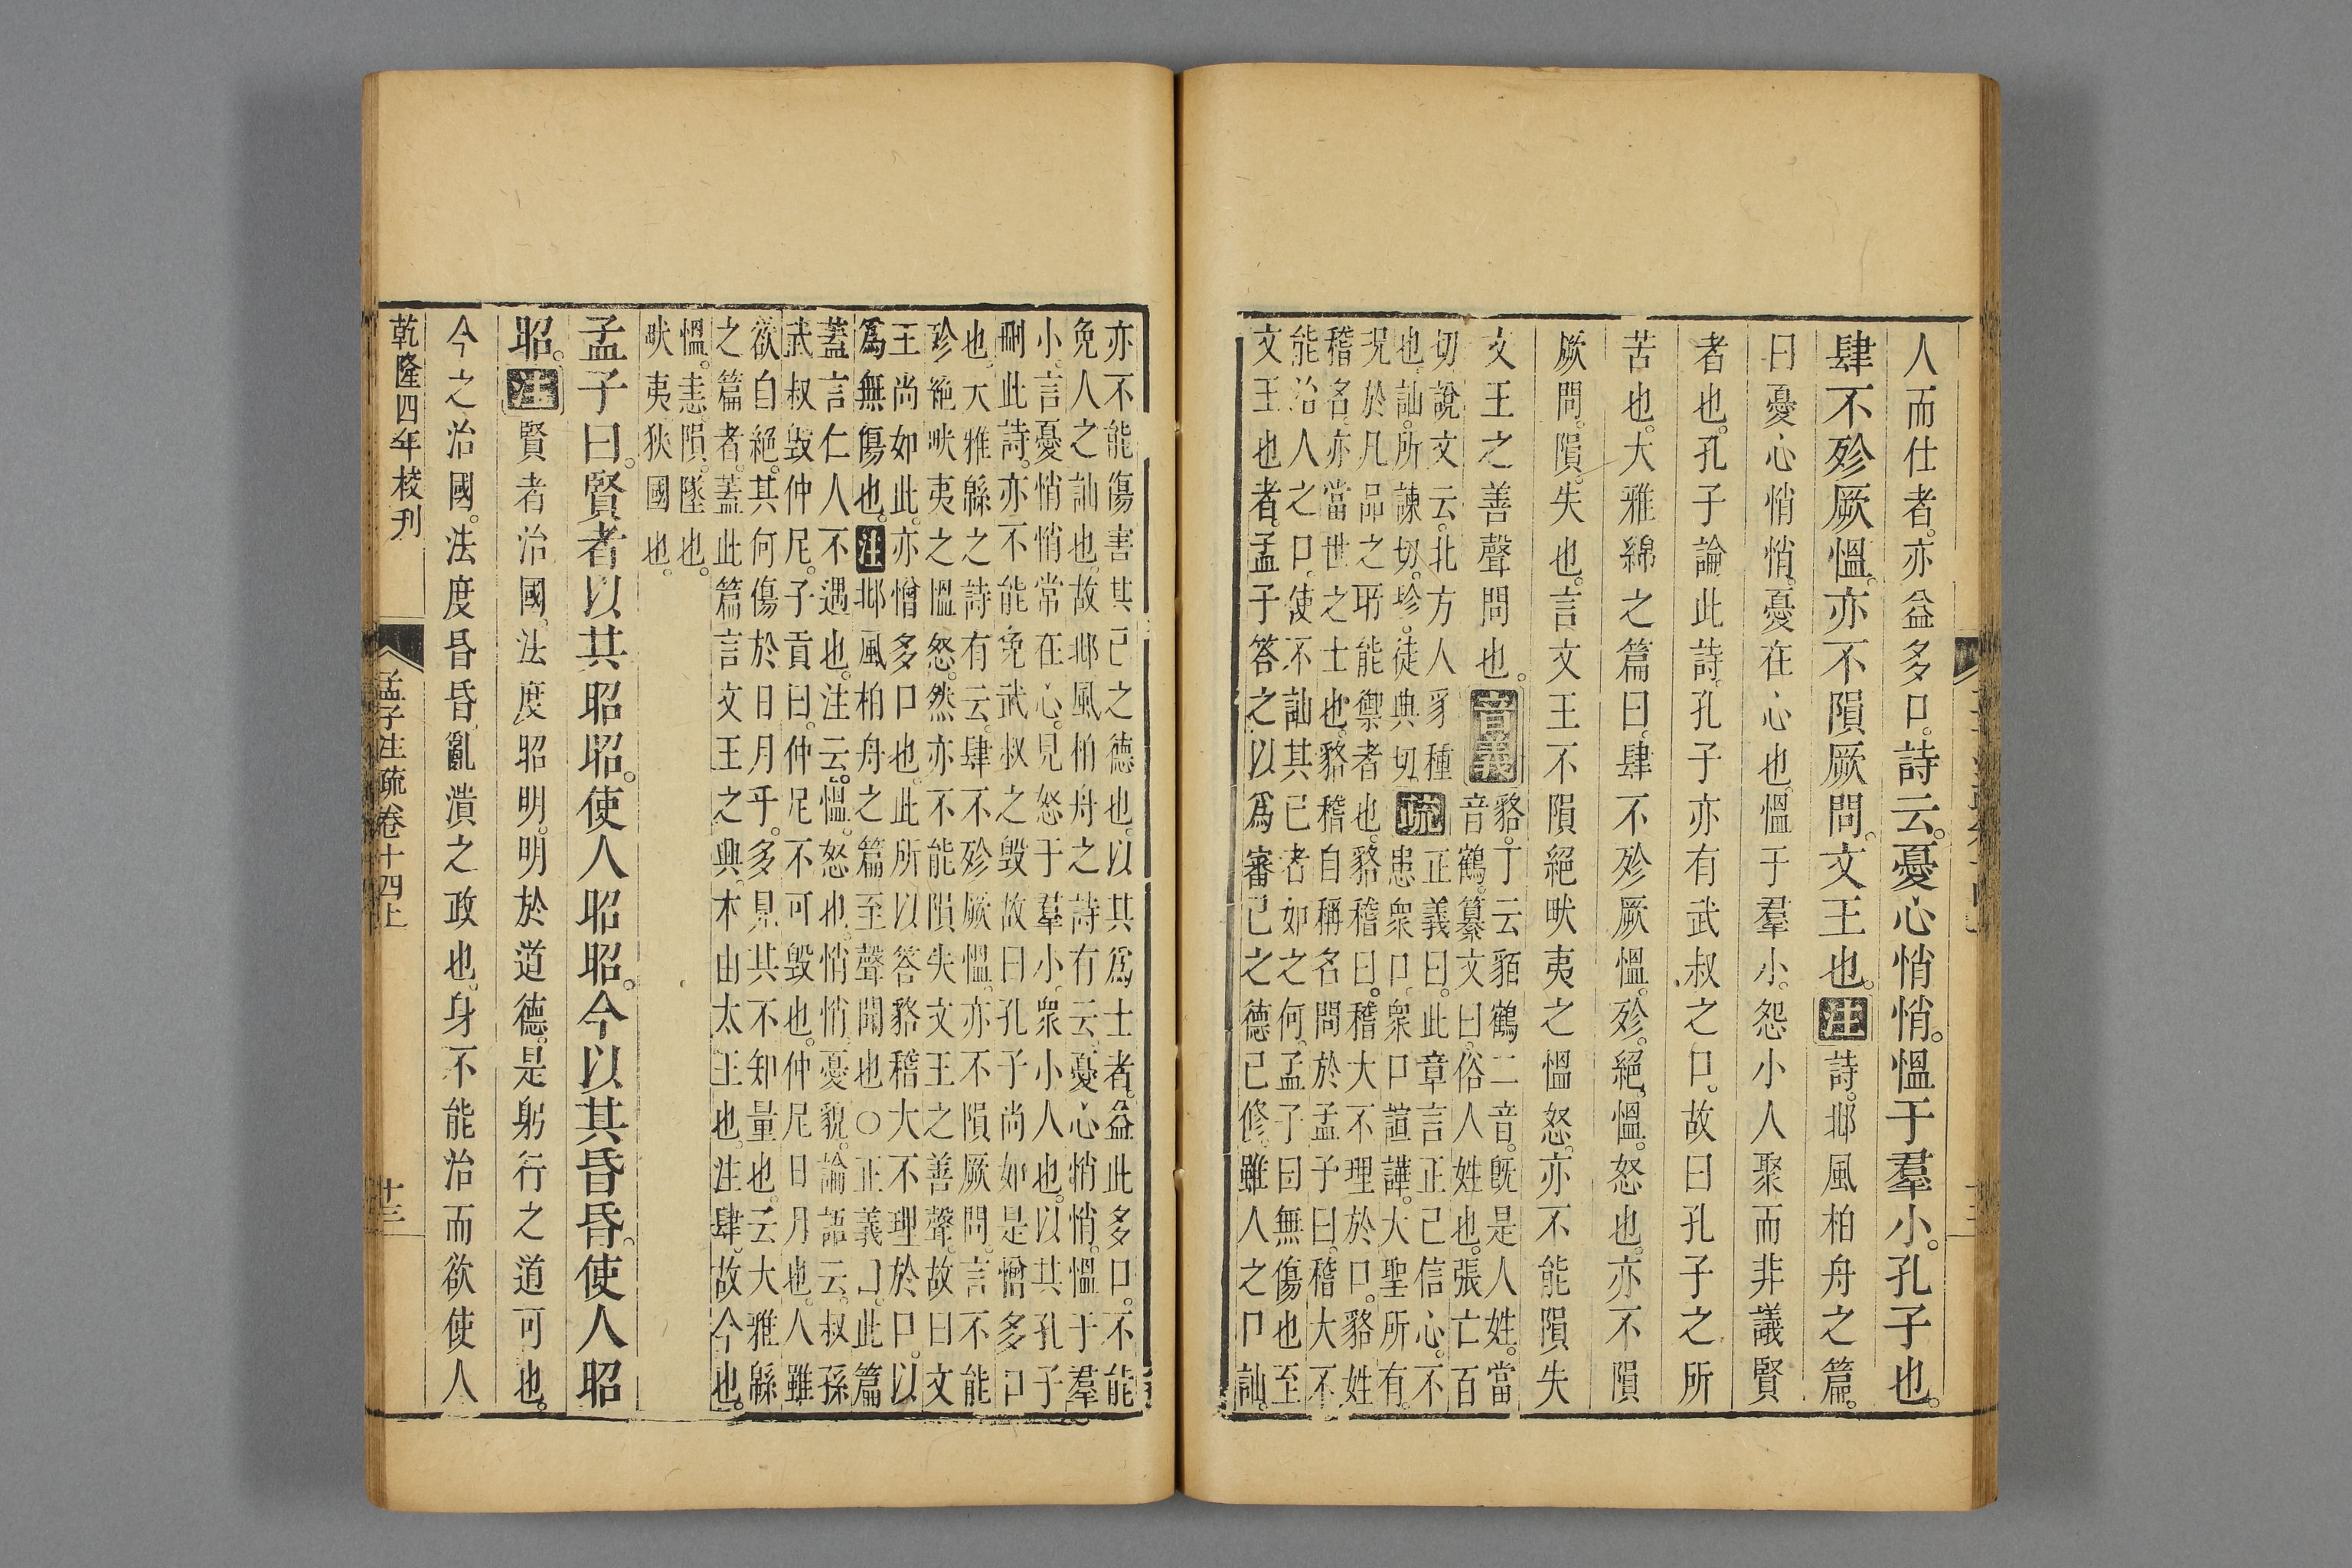 人而仕者。亦益多口。詩云。憂心悄悄。慍于羣小。孔子也。
肆不殄厥慍。亦不隕厥問。文王也。注詩。邶風柏舟之篇。
曰憂心悄悄。憂在心也。慍于羣小。怨小人聚而非議賢
者也。孔子論此詩。孔子亦有武叔之口。故曰孔子之所
苦也。大雅綿之篇曰。肆不殄厥慍。殄。絕。慍。怒也。亦不隕
厥問。隕。失也。言文王不隕絕畎夷之慍怒。亦不能隕失
文王之善聲問也。音義
貉。丁云貊鶴二音。既是人姓。當
音鶴。纂文曰。俗人姓也。張亡百
切。說文云。北方人豸種
也。訕。所諫切。殄。徒典切
疏
正義曰。此章言正己信心。不
患衆口。衆口諠譁。大聖所有。
況於凡品之所能禦者也。貉稽曰。稽大不理於口。貉姓
稽名。亦當世之士也。貉稽自稱名問於孟子曰。稽大不
能治人之口。使不訕其己者如之何。孟子曰無傷也至
文王也者。孟子答之以爲審己之德已修。雖人之口訕。
亦不能傷害其己之德也。以其爲士者。益此多口。不能
免人之訕也。故邶風柏舟之詩有云。憂心悄悄。慍于羣
小。言憂悄悄常在心。見怒于羣小。衆小人也。以其孔子
刪此詩。亦不能免武叔之毀。故曰孔子尚如是憎多口
也。大雅緜之詩有云。肆不殄厥慍。亦不隕厥問。言不能
殄絕畎夷之慍怒。然亦不能隕失文王之善聲。故曰文
王尚如此。亦憎多口也。此所以答貉稽大不理於口。以
爲無傷也。注邶風柏舟之篇至聲聞也○正義曰。此篇
蓋言仁人不遇也。注云。慍。怒也。悄悄。憂貌。論語云。叔孫
武叔毀仲尼。子貢曰。仲尼不可毀也。仲尼日月也。人雖
欲自絕。其何傷於日月乎。多見其不知量也。云大雅緜
之篇者。蓋此篇言文王之興。本由太王也。注肆。故今也。
慍。恚。隕。墜也。
畎夷狄國也。
孟子曰。賢者以其昭昭。使人昭昭。今以其昏昏。使人昭
昭。注賢者治國。法度昭明。明於道德。是躬行之道可也。
今之治國。法度昏昏。亂潰之政也。身不能治而欲使人
乾隆四年校刊
孟子注疏卷十四上
十三